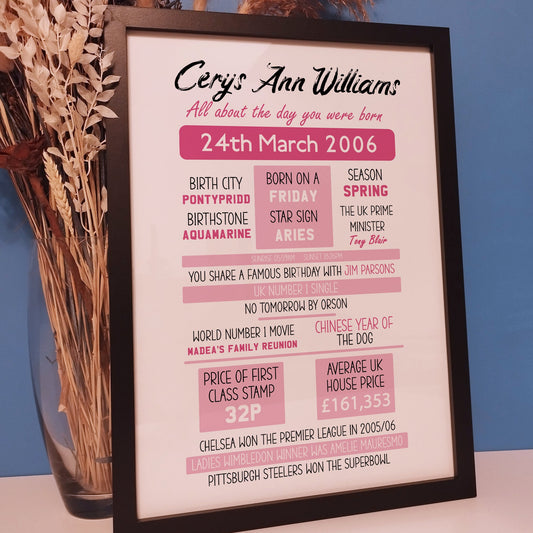 Cerys Ann Williams
All about the day you were born
24th March 2006
BIRTH CITY
PONTYPRIDD
BIRTHSTONE
AQUAMARINE
BORN ON A
FRIDAY
STAR SIGN
ARIES
SEASON
SPRING
THE UK PRIME
MINISTER
Tony Blair
SUNRISE 05:59AM SUNSET 18:26PM
YOU SHARE A FAMOUS BIRTHDAY WITH JIM PARSONS
UK NUMBER 1 SINGLE
NO TOMORROW BY ORSON
WORLD NUMBER 1 MOVIE
MADEA'S FAMILY REUNION
CHINESE YEAR OF
THE DOG
PRICE OF FIRST
CLASS STAMP
32P
AVERAGE UK
HOUSE PRICE
£161,353
CHELSEA WON THE PREMIER LEAGUE IN 2005/06
LADIES WIMBLEDON WINNER WAS AMELIE MAURESMO
PITTSBURGH STEELERS WON THE SUPERBOWL